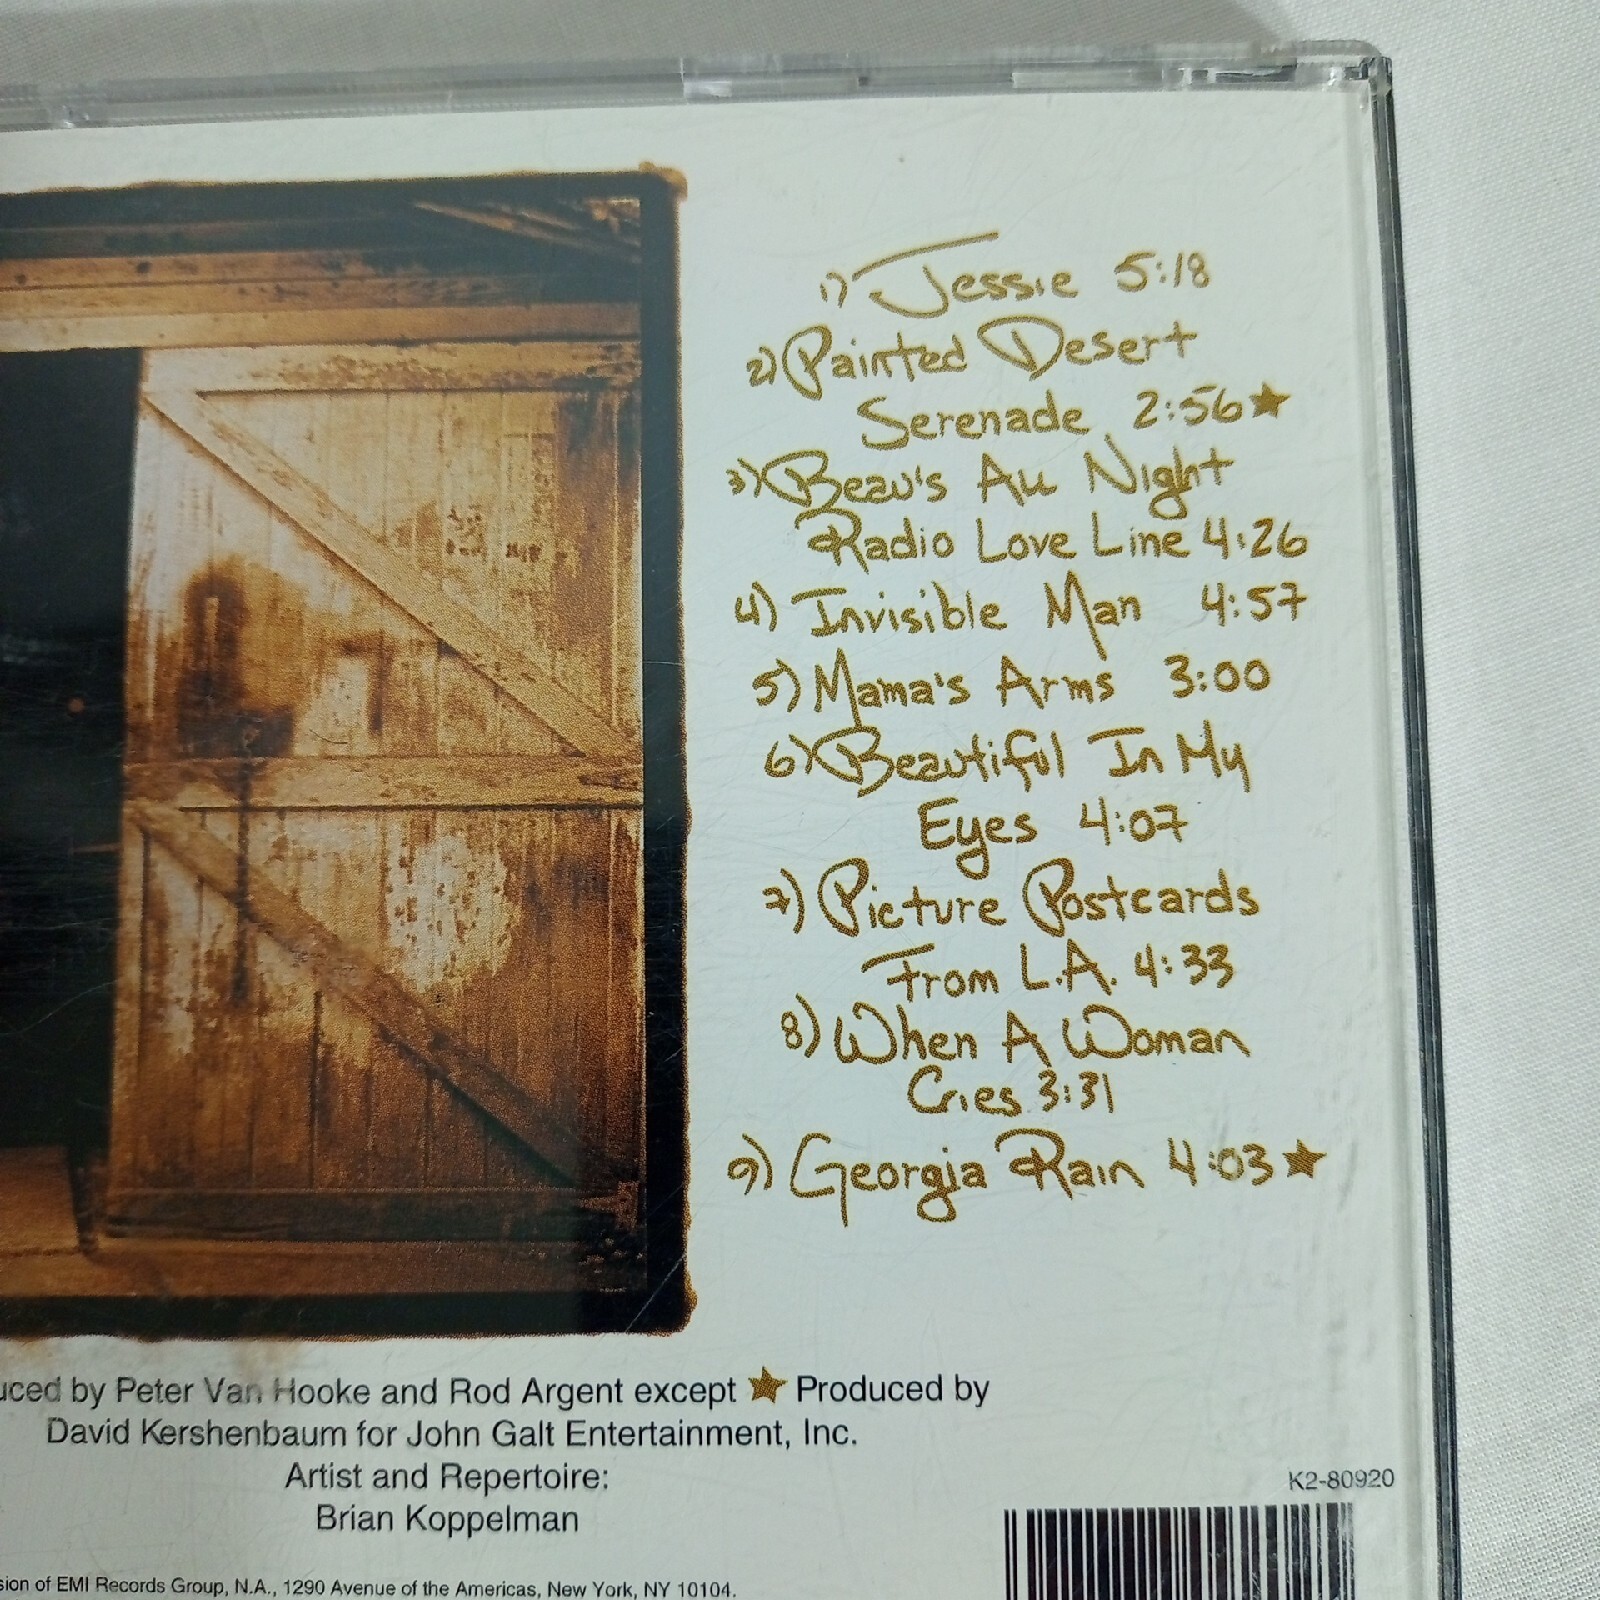 1) Jessie 5:18
2) Painted Desert
Serenade 2:56★
3) Beau's All Night
Radio Love Line 4:26
4) Invisible Man 4:57
5) Mama's Arms 3:00
6) Beautiful In My
Eyes 4:07
7) Picture Postcards
From L.A. 4:33
8) When A Woman
Cries 3:31
9) Georgia Rain 4:03★
uced by Peter Van Hooke and Rod Argent except ★ Produced by
David Kershenbaum for John Galt Entertainment, Inc.
Artist and Repertoire:
Brian Koppelman
K2-80920
sion of EMI Records Group, N.A., 1290 Avenue of the Americas, New York, NY 10104.